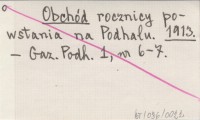 Obchód rocznicy po-
wstania na Podhalu. 1913.
— Gaz. Podh. 1, nr 6-7.